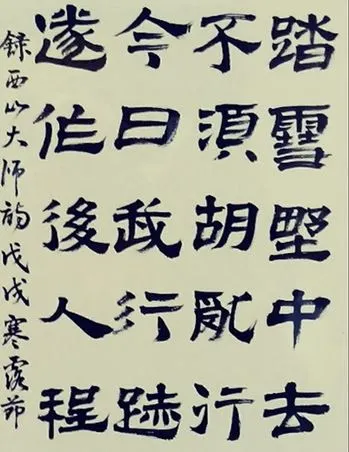 踏雪野中去
不須胡亂行
今日我行跡
遂作後人程
錄西山大師詩戊戌寒露節